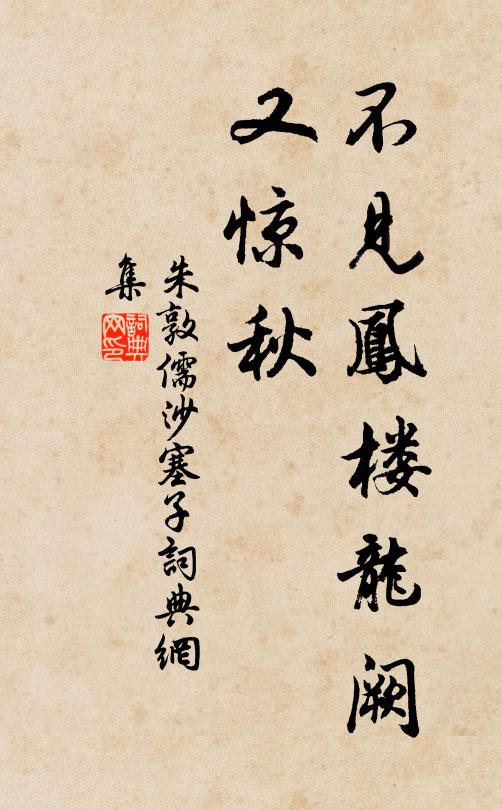 不见鳳楼龍阙
又惊秋
朱敦儒沙塞子詞典網
集
詞典
网印